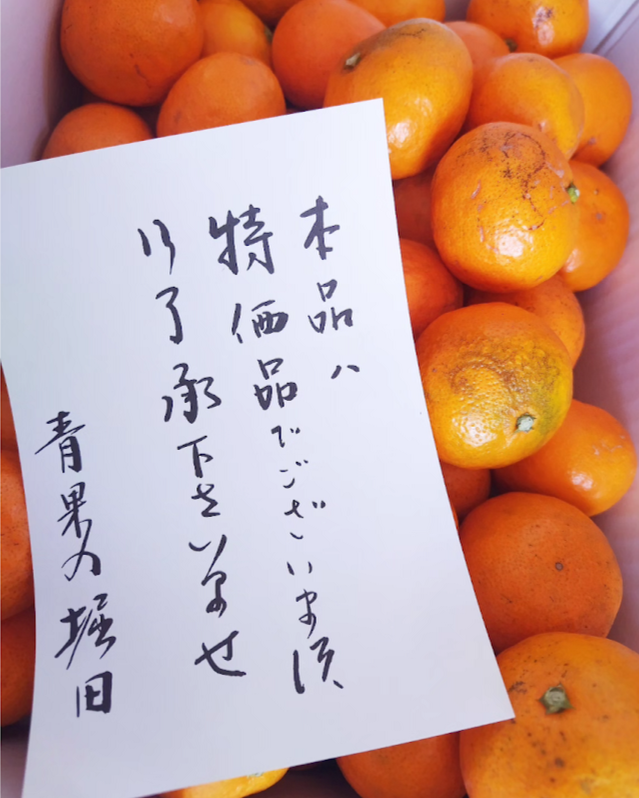 本品ハ
特価品でございます須
御了承下さいませ
青果の堀田